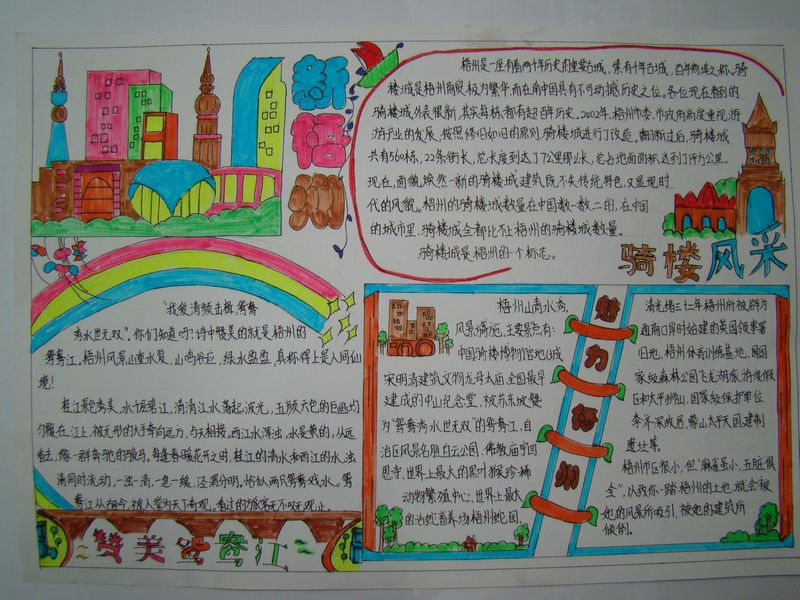 新梧州
梧州是一座有着两千年历史的重要古城,素有千年古城,百年商埠之称。骑
楼城是梧州商贸极为繁华,而在南中国具有不可动摇历史之位。各位现在看到的
骑楼城外表很新,其实每栋都有超百年历史。2002年,梧州市委、市政府高度重视旅
游产业的发展,按照修旧如旧的原则,骑楼城进行了改造。翻新过后,骑楼城
共有560栋,22条街长,总长度到达了7公里那么长,总占地面面积达到了1平方公里。
现在,面貌焕然一新的骑楼城建筑既不失传统特色,又显现时
代的风貌。梧州的骑楼城数量在中国数一数二的,在中国
的城市里,骑楼城全都比不上梧州的骑楼城数量。
骑楼城是梧州的一个标志。
骑楼风采
"我爱清频击楫,鸳鸯
秀水世无双",你们知道吗?诗中赞美的就是梧州的
鸳鸯江。梧州风景山重水复,山鸣谷应,绿水盈盈,真称得上是人间仙
境!
桂江景色秀美,水千层碧江,清清江水荡起波光,五颜六色的巨画均
匀铺在江上,被无形的大手奔向远方,与天相接。西江水浑浊,水是黄的,从远
看去,像一群奔驰的骏马。每逢春暖花开之时,桂江的清水和西江的水,浊
清同时流动,一浊一清,一急一缓,泾渭分明,恰似两只鸳鸯戏水。鸳
鸯江从古至今,被人誉为天下奇观,看过的旅客无不叹观止。
赞美鸳鸯江
梧州山青水秀,
风景绮旎,主要景点有:
中国骑楼博物馆地以城
宋明清建筑文物龙母太庙、全国最早
建成的中山纪念堂、被苏东坡赞
为"鸳鸯秀水世无双"的鸳鸯江、自
治区风景名胜白云公园、佛教庙宇四
恩寺、世界上最大的黑叶猴珍稀
动物繁殖中心、世界上最大
的治蛇畜养场梧州蛇园、
魅力梧州
清光绪二十七年梧州府被辟为
通商口岸时始建的英国领事署
旧地、梧州体育训练基地、国
家级森林公园飞龙湖旅游度假
区和太平狮山、国家级保护单位
李济深故居、蒙山太平天国建制
遗址等。
梧州市区很小,但"麻雀虽小,五脏俱
全",以致你一踏梧州的土地,就会被
她的风景所吸引,被她的建筑所
倾倒。